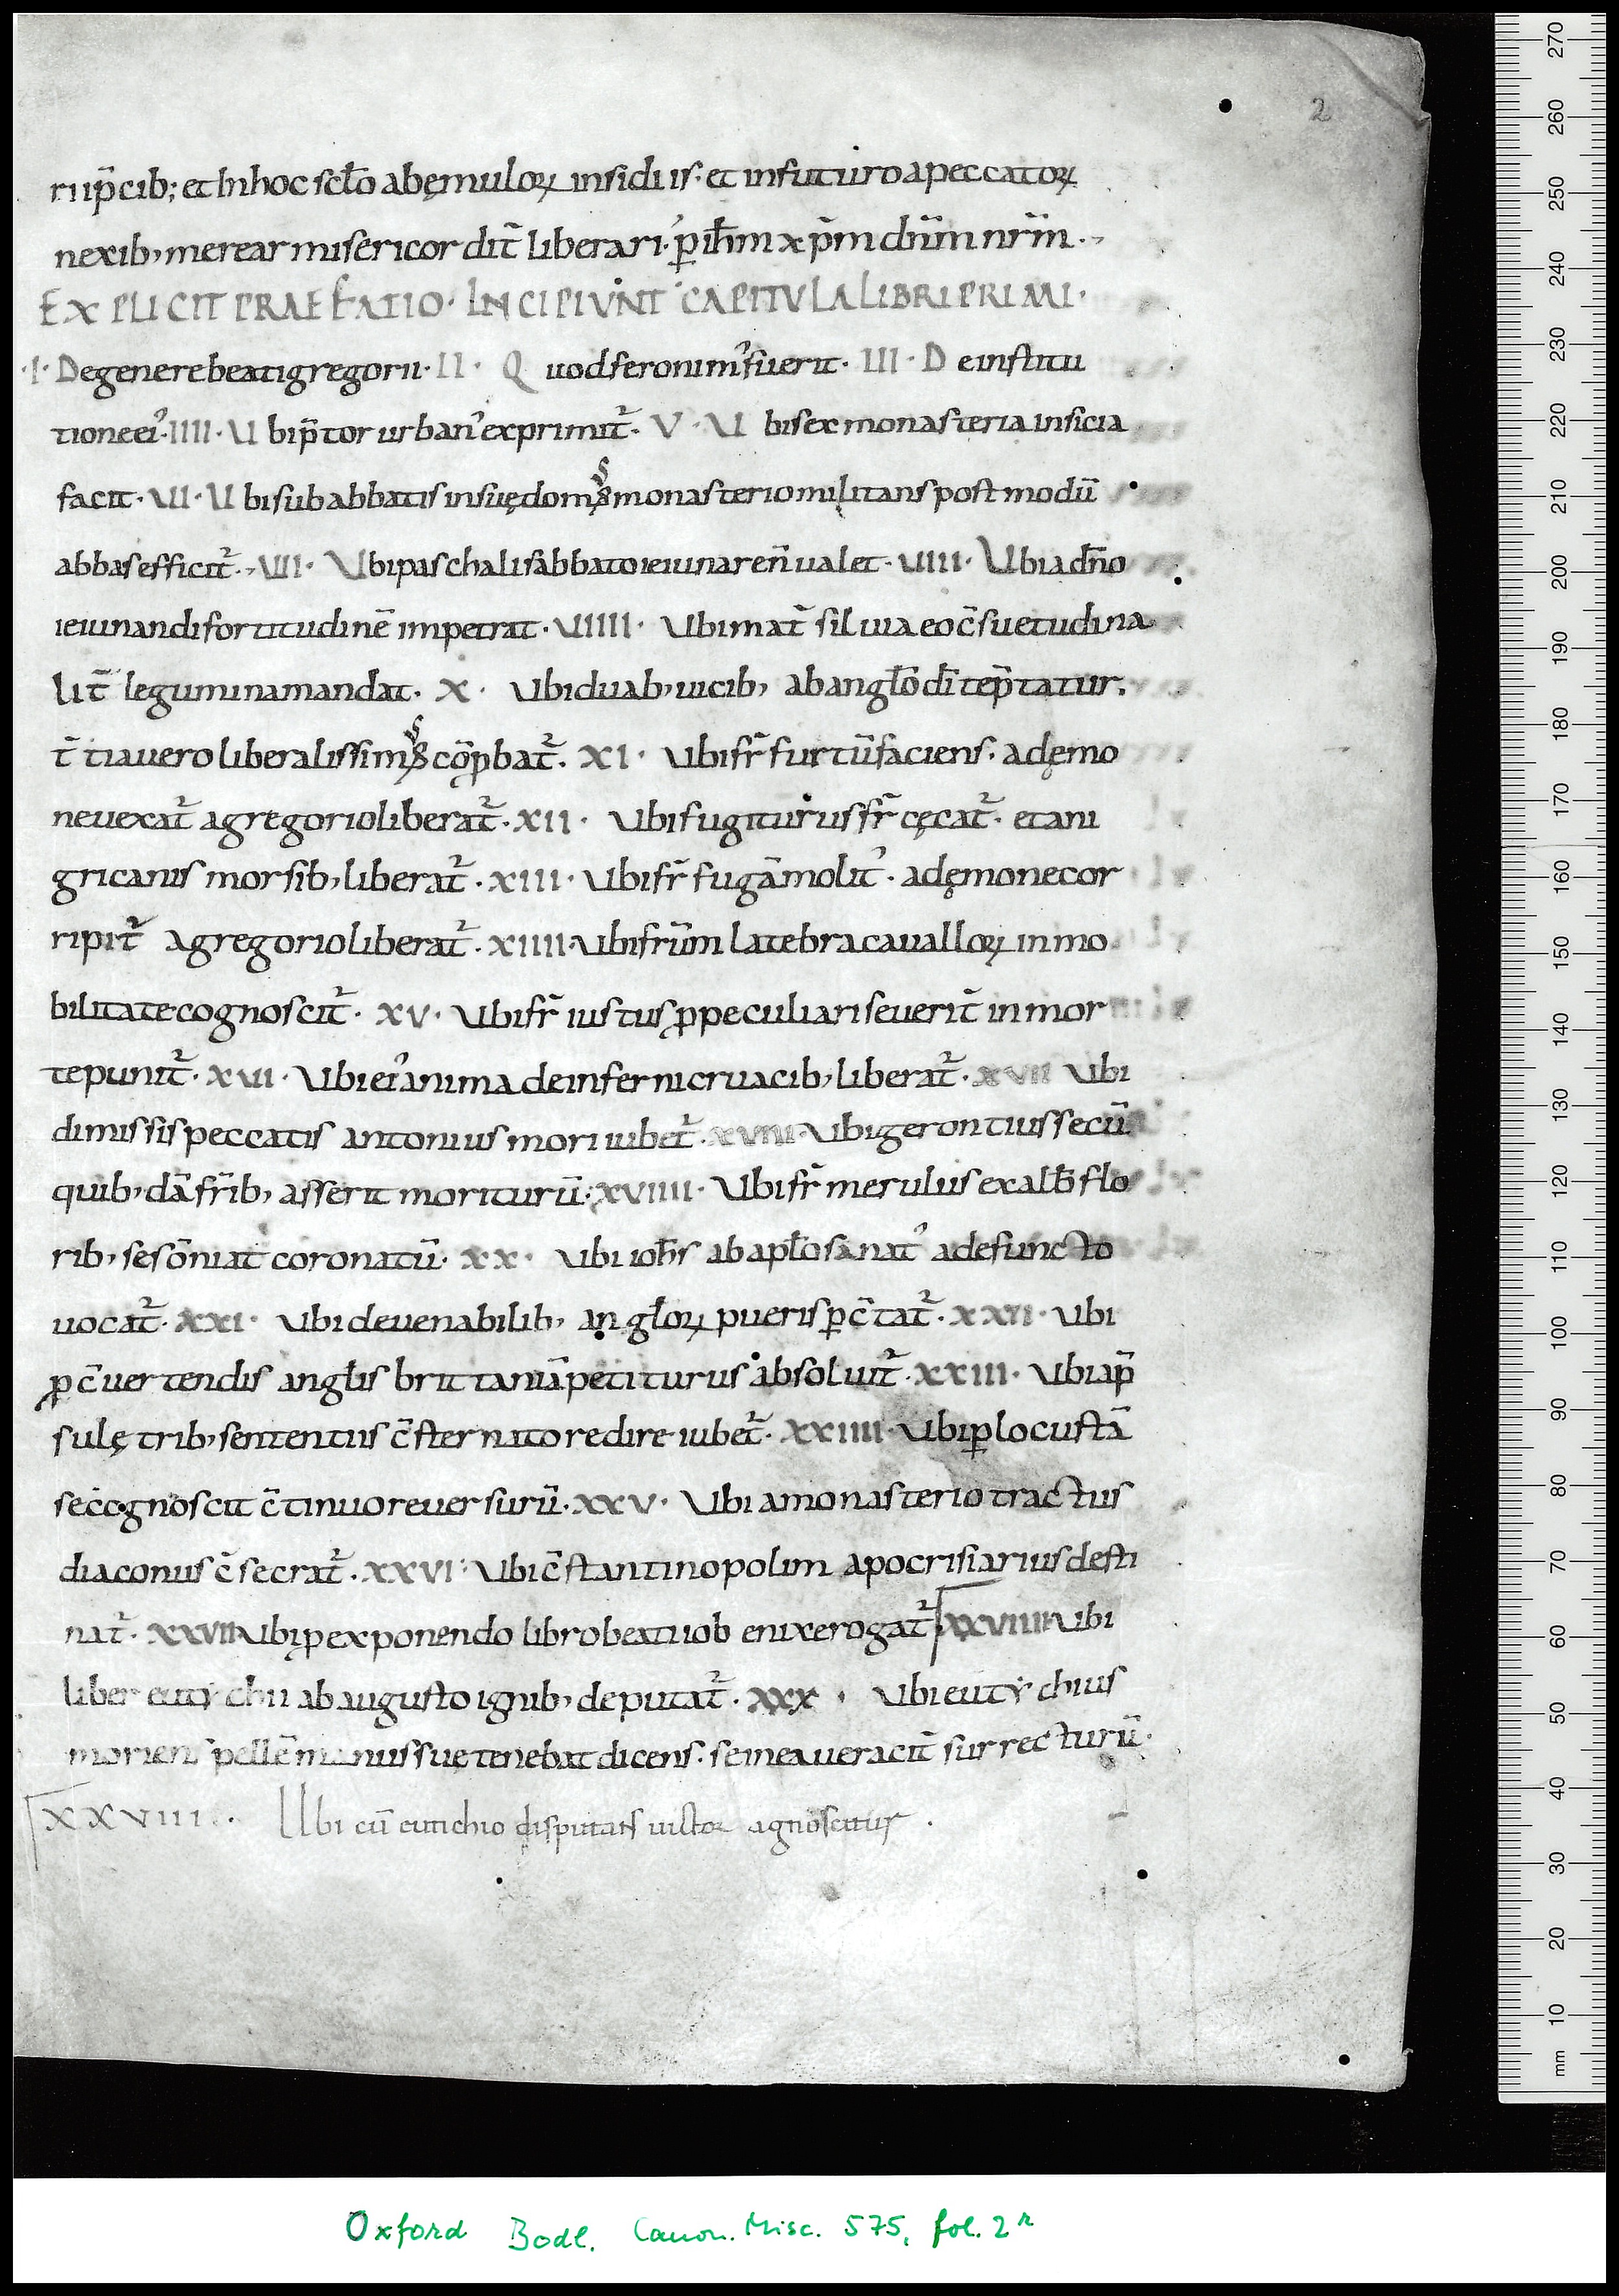 2
rii p̄cib; et In hoc scło ab ęmuloꝝ insidiis· et in futuro a peccatoꝝ
nexib, merear misericordit̄ liberari· ꝑ ih̄m xp̄m dn̄m nr̄m·
EXPLICIT PRAEFATIO· INCIPIUNT CAPITULA LIBRI PRIMI·
·I· De genere beati gregorii· II· Quod seronim᾿ fuerit· III· De institu
tione ei᾿· IIII· Ubi p̄tor urban᾿ exprimit᷑· V· Ubi sex monasteria in sicia
facit· VI· Ubi sub abbatis in suę dom᾿ monasterio militans postmodū
abbas efficit᷑· VII· Ubi paschali sabbato ieiunare n̄ ualet· VIII· Ubi a dn̄o
ieiunandi fortitudinē impetrat· VIIII· Ubi mat̄ siluia eo c̄suetudina
lit̄ legumina mandat· X· Ubi duab, uicib, ab angło dī tēptatur·
t̄tia uero liberalissim᾿ cōꝓbat᷑· XI· Ubi fr̄ furtū faciens· a dęmo
ne uexat᷑ a gregorio liberat᷑· XII· Ubi fugiturus fr̄ cęcat᷑· et a ni
gri canis morsib, liberat᷑· XIII· Ubi fr̄ fugā molit᾿· a dęmone cor
ripit᷑ a gregorio liberat᷑· XIIII· Ubi frūm latebra caualloꝝ inmo
bilitate cognoscit᷑· XV· Ubi fr̄ iustus ꝓ peculiari seuerit̄ in mor
te punit᷑· XVI· Ubi ei᾿ anima de inferni cruacib, liberat᷑· XVII Ubi
dimissis peccatis antonius mori iubet᷑· XVIII· Ubi gerontius secū
quib,dā fr̄ib, asserit moriturū· XVIIII· Ubi fr̄ merulus ex alb̄ flo
rib, se sōniat coronatū· XX· Ubi ioh̄s ab apło sanat᾿ a defuncto
uocat᷑· XXI· Ubi de uenabilib, angłoꝝ pueris ꝑc̄tat᷑· XXII· Ubi
ꝓ c̄uertendis angłis brittaniā petiturus absoluit᷑· XXIII· Ubi a p̄
sulę trib, sententiis c̄sternato redire iubet᷑· XXIIII· Ubi ꝑ locustā
se cognoscit c̄tinuo reuersurū· XXV· Ubi a monasterio tractus
diaconus c̄secrat᷑· XXVI· Ubi c̄stantinopolim apocrisiarius desti
nat᷑· XXVII Ubi ꝓ exponendo libro beati iob enixe rogat᷑· XXVIIII Ubi
liber eutychii ab augusto ignib, deputat᷑· XXX· Ubi eutychius
moriens pellē manus suę tenebat dicens· se in ea ueracit̄ surrecturū·
XXVIII·· Ubi cū eutichio disputans uictor agnoscitur·
Oxford Bodl. Canon. Misc. 575, fol. 2r
270
260
250
240
230
220
210
200
190
180
170
160
150
140
130
120
110
100
90
80
70
60
50
40
30
20
10
mm